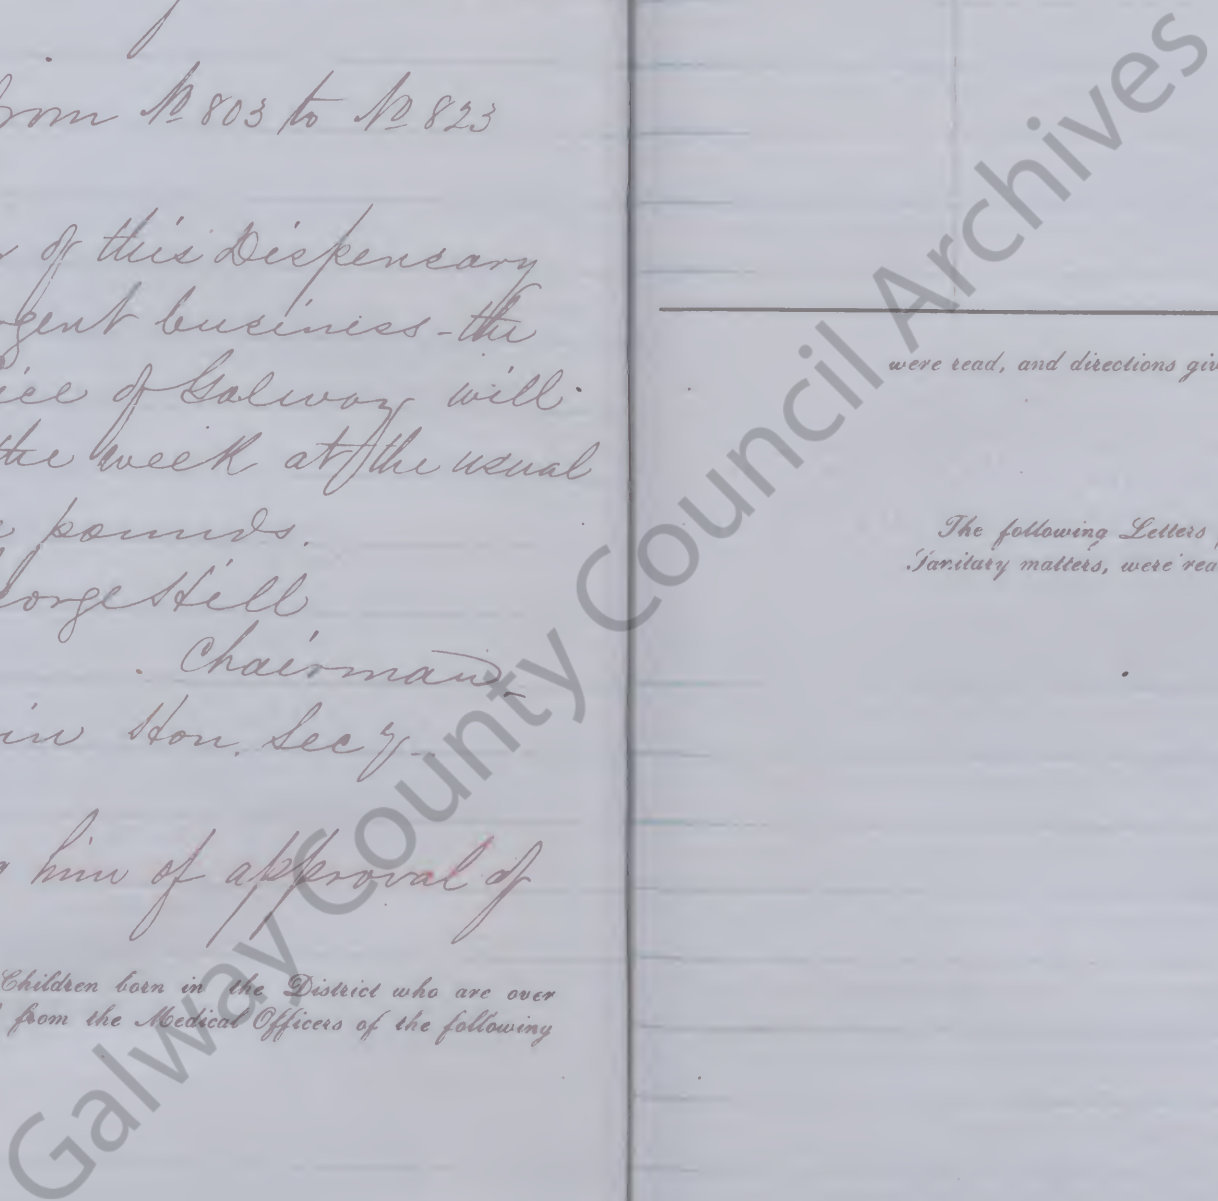 from No 803 to No 823
of this Dispensary
business - the
of Galway will
the week at the usual
pounds.
George Hill
Chairman
Hon. Secy
him of approval of
Children born in the District who are over
from the Medical Officers of the following
were read, and directions giv
The following Letters
Sanitary matters, were rea
Galway County Council Archives